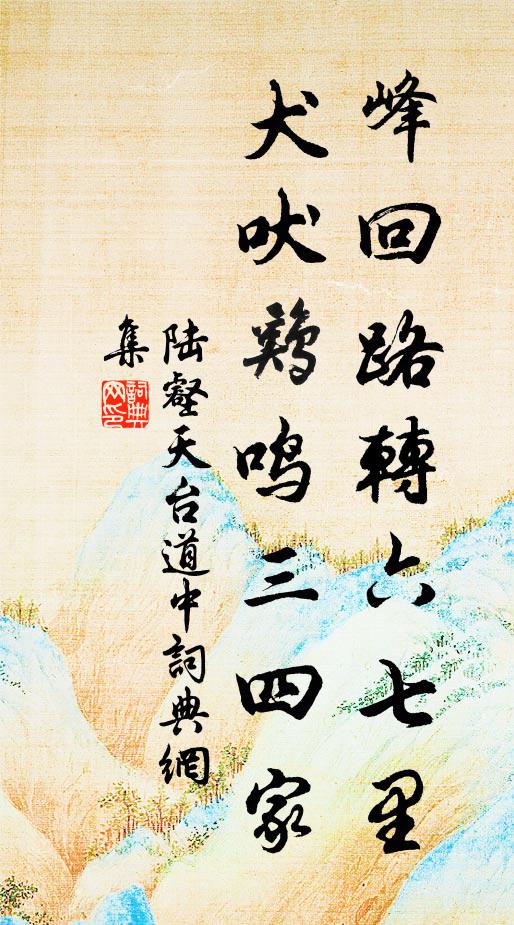 峰回路轉六七里
犬吠鷄鳴三四家
陆壑天台道中詞典網
集
詞典
网印